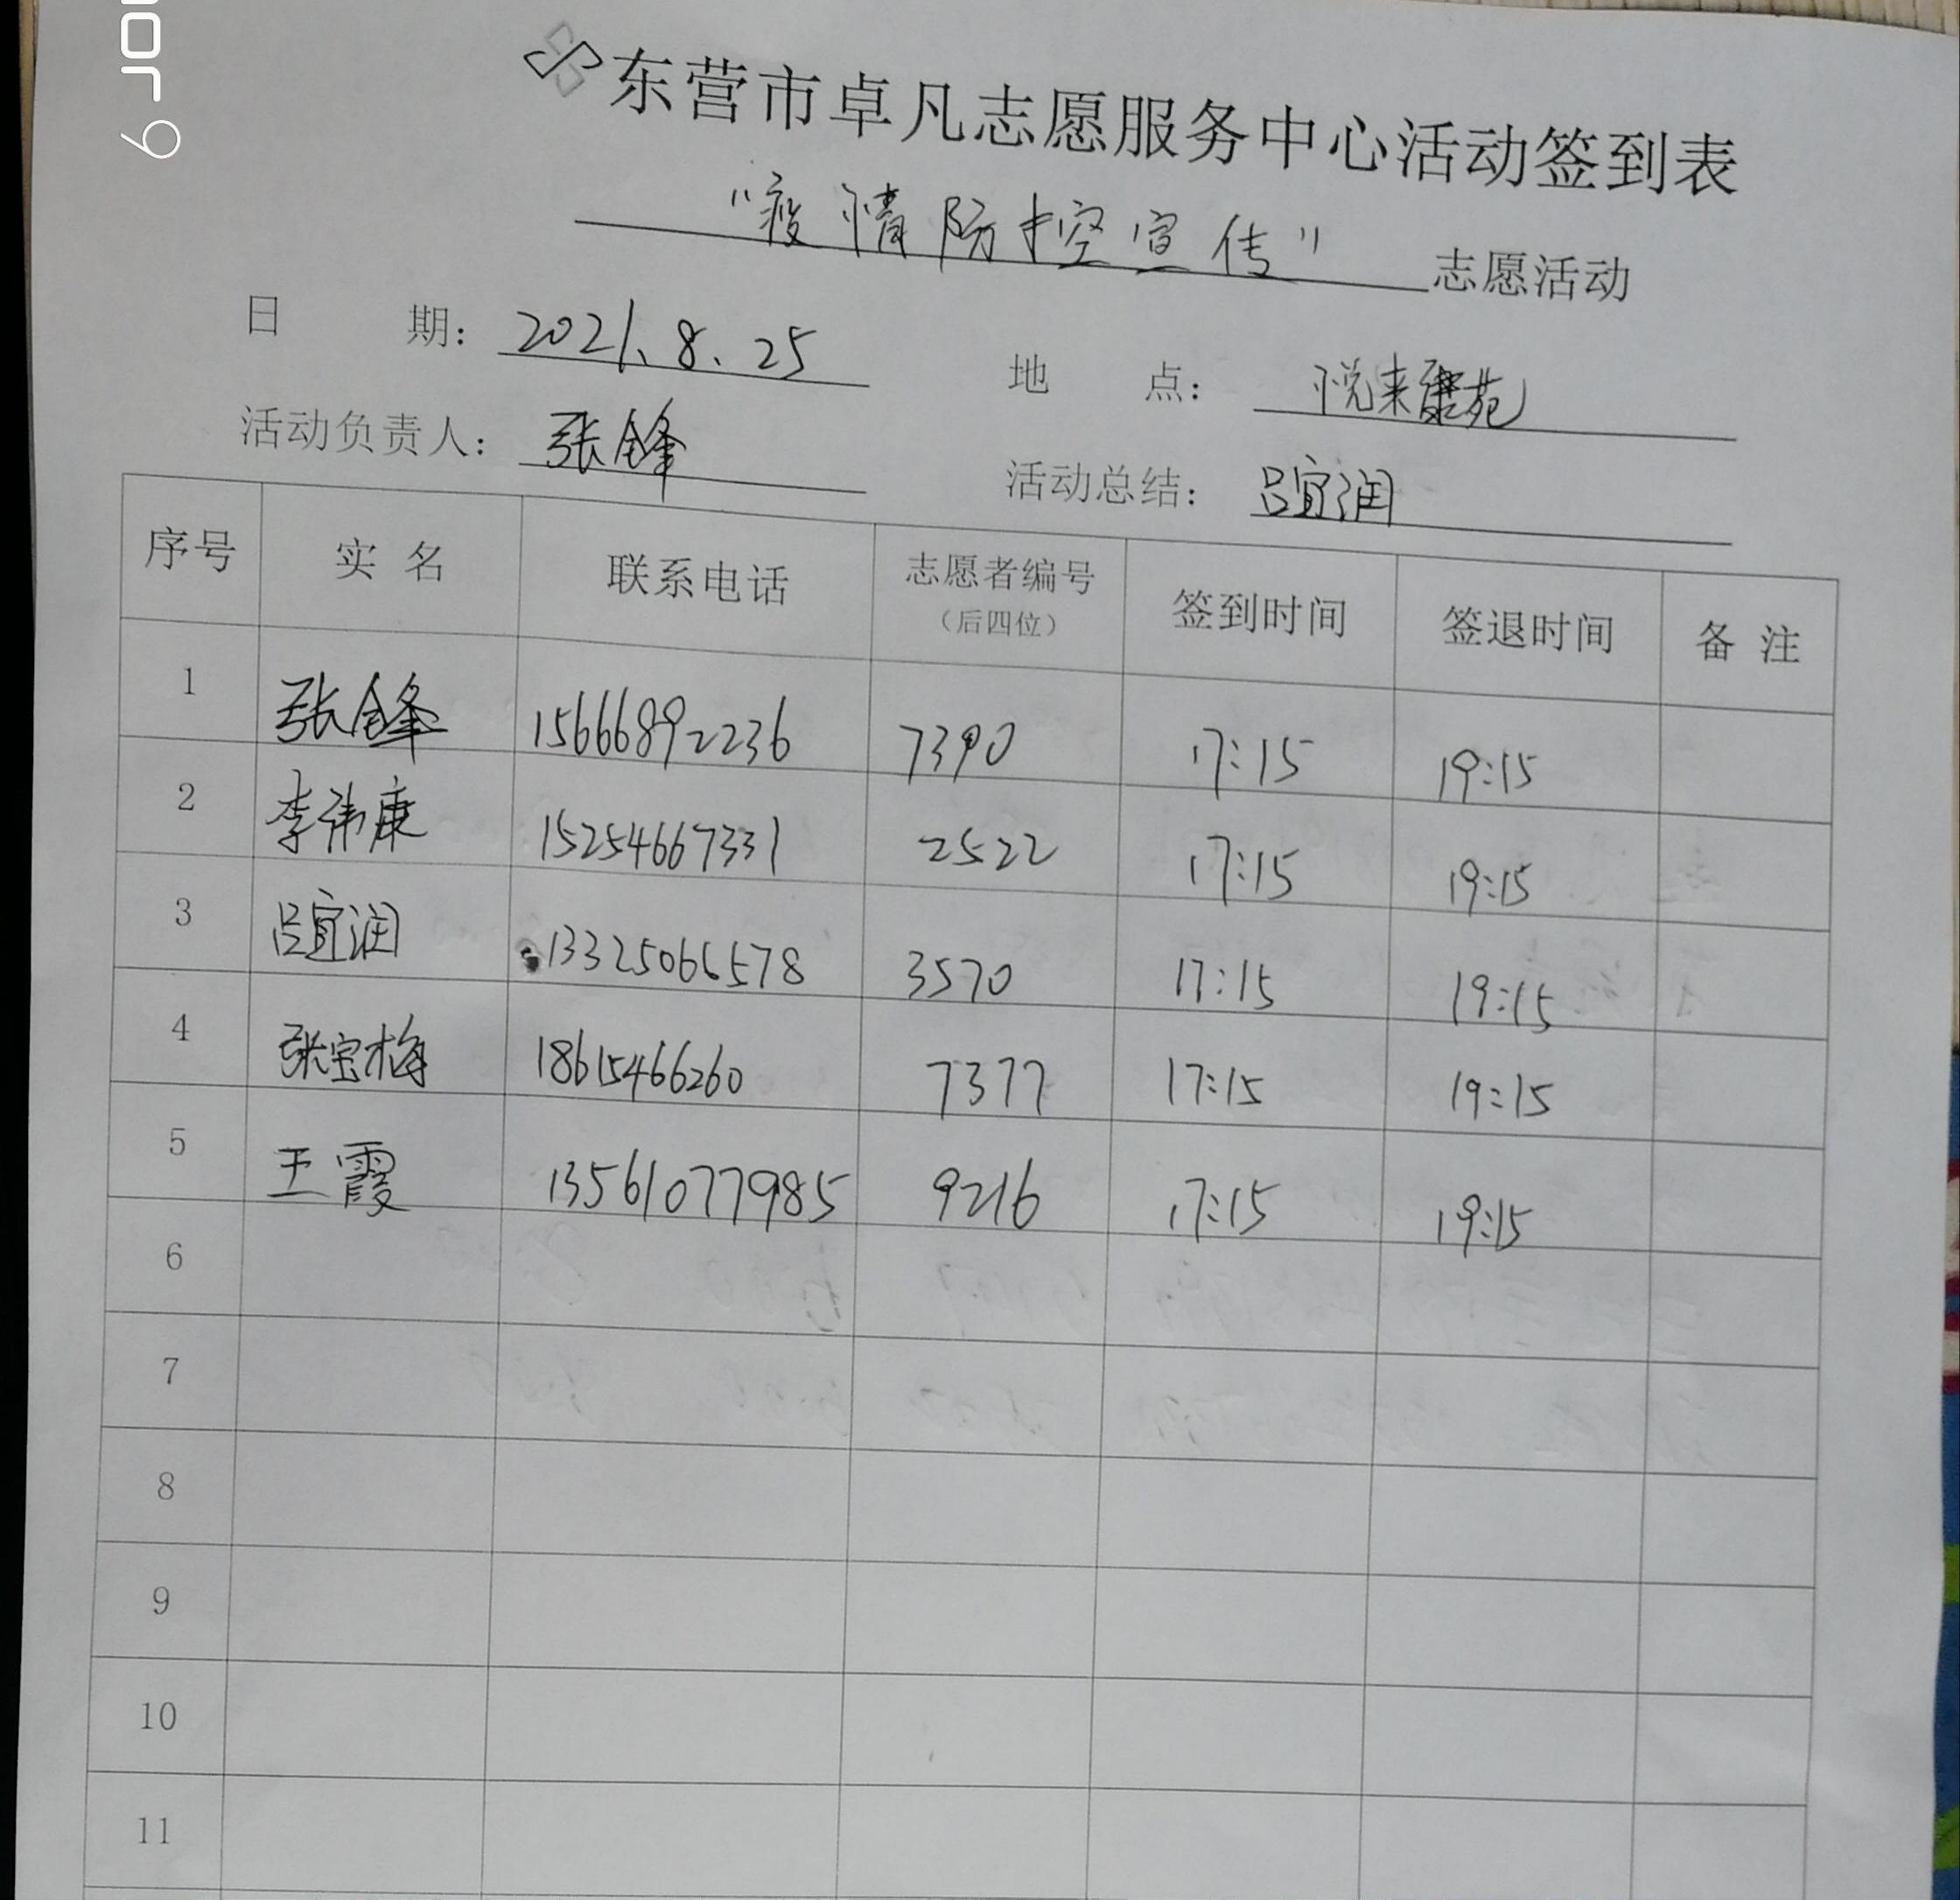 nor 9
东营市卓凡志愿服务中心活动签到表
“疫情防控宣传”志愿活动
日 期： 2021.8.25 地 点： 悦来康苑
活动负责人： 张锋 活动总结： 吕宜润
序号 实名 联系电话 志愿者编号（后四位） 签到时间 签退时间 备注
1 张锋 15666892236 7390 17:15 19:15
2 李伟康 15254667331 2522 17:15 19:15
3 吕宜润 13325066578 3570 17:15 19:15
4 张宝梅 18615466260 7377 17:15 19:15
5 王霞 13561077985 9216 17:15 19:15
6
7
8
9
10
11